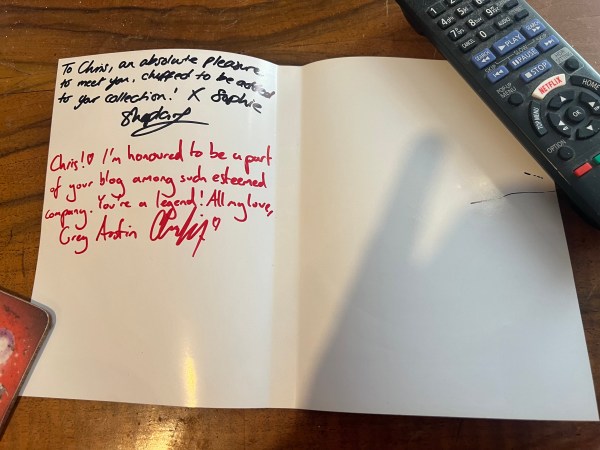 To Chris, an absolute pleasure
to meet you, chuffed to be added
to your collection! X Sophie
Chris! I'm honoured to be a part
of your blog among such esteemed
company. You're a legend! All my love,
Greg Austin
1
2
4
5
6
7
8
9
CANCEL
0
PLAY
PAUSE
STOP
NETFLIX
HOME
POP-UP
MENU
OK
OPTION